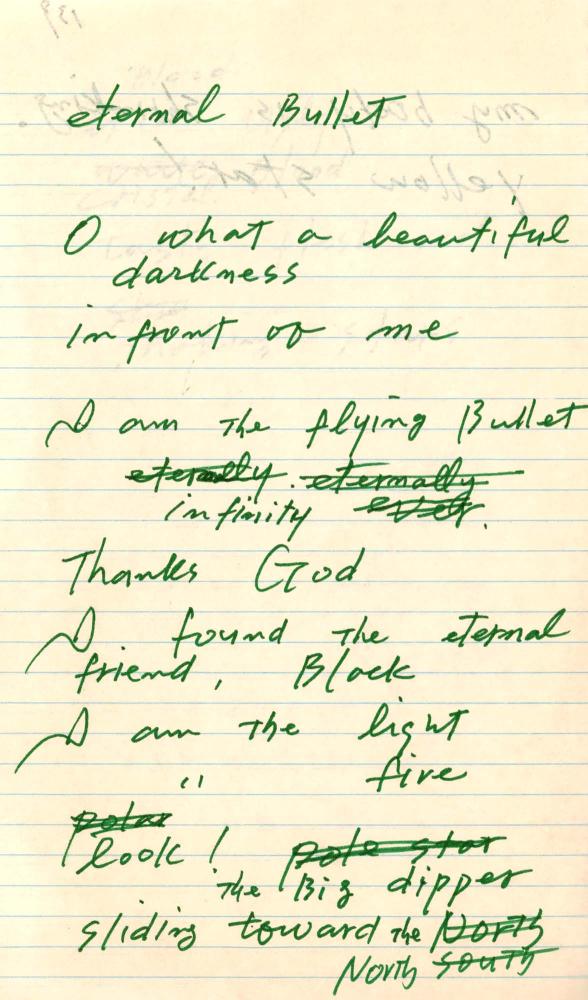 139
eternal Bullet
O what a beautiful
darkness
in front of me
I am the flying Bullet
eternally. eternally
infinity ever.
Thanks God
I found the eternal
friend, Black
I am the light
" fire
polar
look! pole star
the Big dipper
sliding toward the North
North South
my body is shrinking.
yellow star!